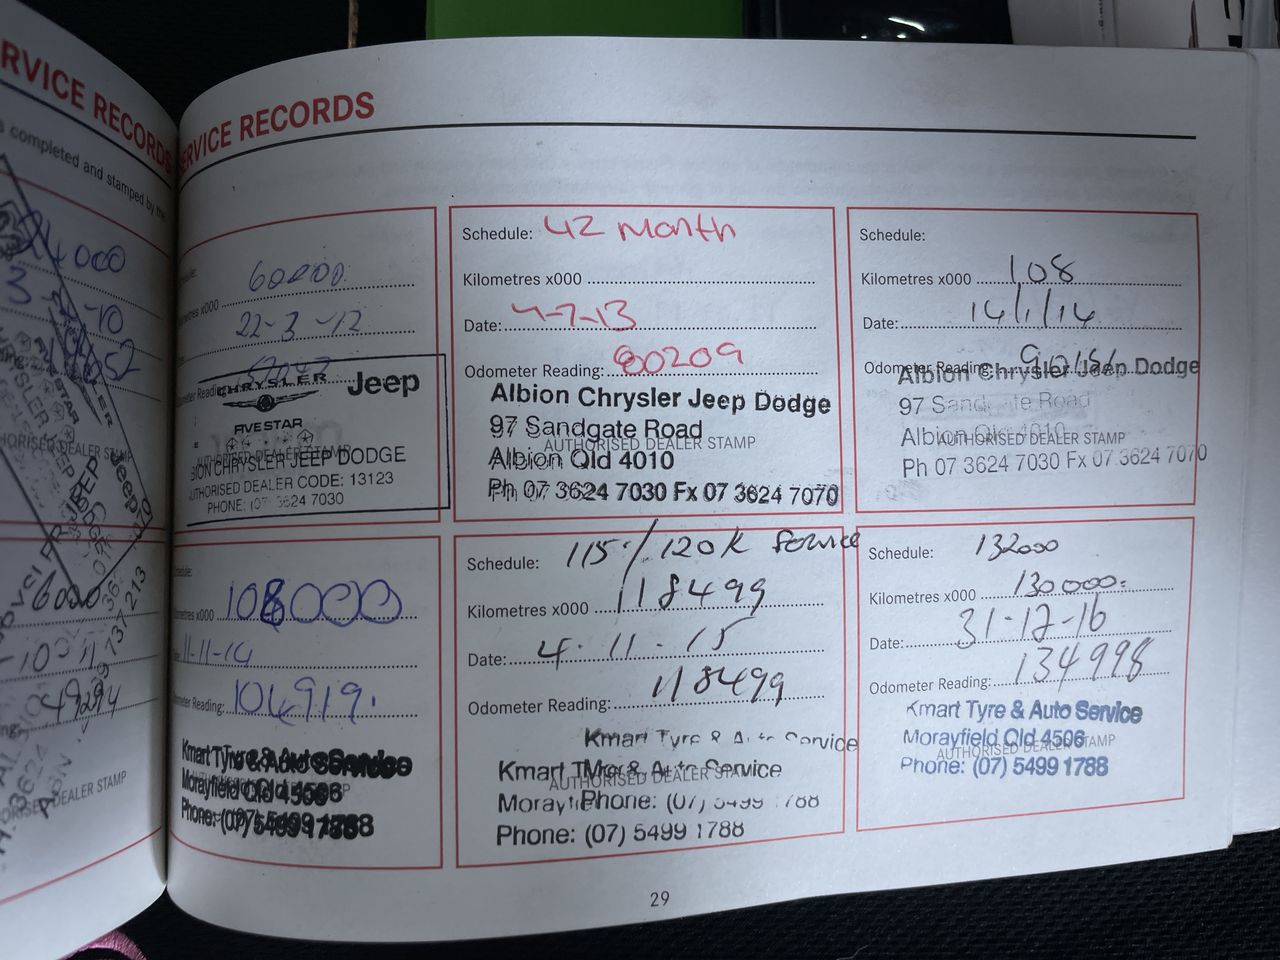 RVICE RECORDS
completed and stamped by the
24000
3
10
6000
10-11
49294
DEALER STAMP
DEALER STAMP
ERVICE RECORDS
60000
x000
22-3-12
CHRYSLER Jeep
FIVE STAR
AUTHORISED DEALER STAMP
BION CHRYSLER JEEP DODGE
UTHORISED DEALER CODE: 13123
PHONE: (07) 3624 7030
Schedule: 42 Month
Kilometres x000
Date: 4-7-13
Odometer Reading: 80209
Albion Chrysler Jeep Dodge
97 Sandgate Road
AUTHORISED DEALER STAMP
Albion Qld 4010
Ph 07 3624 7030 Fx 07 3624 7070
Schedule:
Kilometres x000 108
Date: 14/1/14
Odometer Reading:
Albion Chrysler Jeep Dodge
97 Sandgate Road
Albion Qld 4010
AUTHORISED DEALER STAMP
Ph 07 3624 7030 Fx 07 3624 7070
x000 108000
11-11-14
Reading: 104919.
Kmart Tyre & Auto Service
Morayfield Qld 4506
Phone: (07) 5499 1788
Schedule: 115/120K Service
Kilometres x000 118499
Date: 4.11.15
Odometer Reading: 118499
Kmart Tyre & Auto Service
Kmart Tyre & Auto Service
AUTHORISED DEALER STAMP
Phone: (07) 5499 1788
Phone: (07) 5499 1788
Schedule: 132000
Kilometres x000 130000.
Date: 31-12-16
Odometer Reading: 134998
Kmart Tyre & Auto Service
Morayfield Qld 4506
AUTHORISED DEALER STAMP
Phone: (07) 5499 1788
29